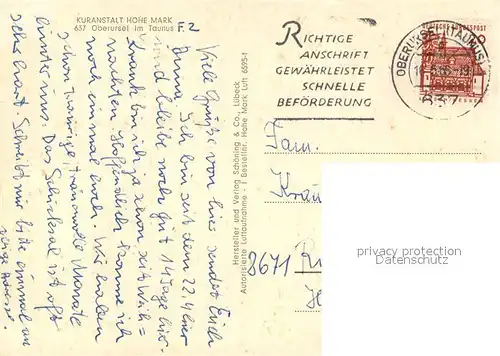 KURANSTALT HOHE MARK
637 Oberursel im Taunus
F.2
Viele Grüße von hier sendet Euch
Anna. Ich bin seit dem 22.4. hier
und bleibe wohl gut 14 Tage hier.
Krank bin ich ja schon seit Weih=
nachten. Hoffentlich komme ich
noch einmal hoch. Wir haben
schon traurige, Monate
hinter uns. Das Schicksal ist oft
sehr hart. Schreibt mir bitte einmal an
Hersteller und Verlag Schöning & Co., Lübeck
Autorisierte Luftaufnahme - 1 Bestellnr. Hohe Mark Luft 6595-1
RICHTIGE
ANSCHRIFT
GEWÄHRLEISTET
SCHNELLE
BEFÖRDERUNG
OBERURSEL (TAUNUS)
637
DEUTSCHE BUNDESPOST
Fam.
Krau
8671
privacy protection
Datenschutz